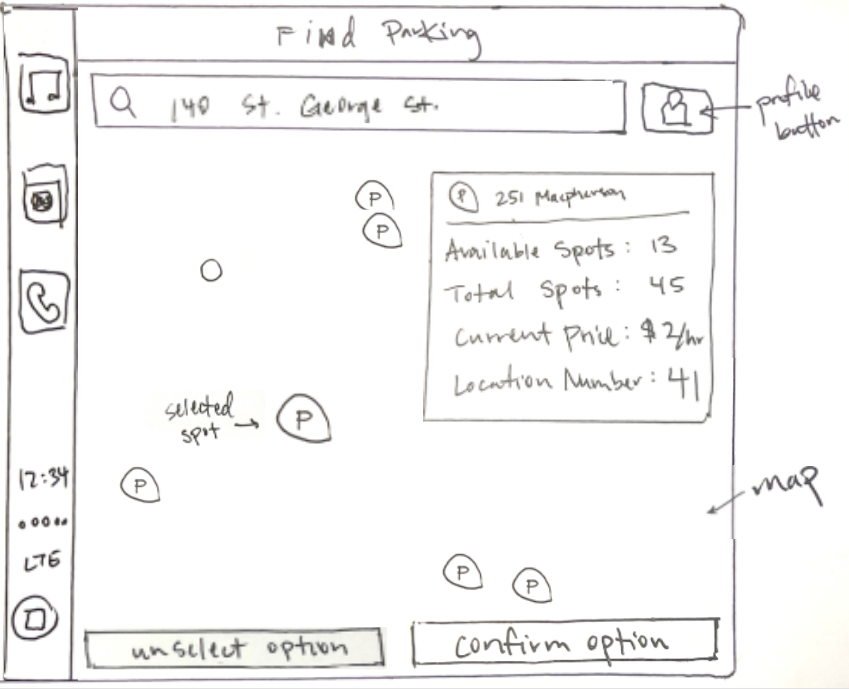 Find Parking
140 St. George St.
profile
button
P
P
P 251 Macpherson
Available Spots: 13
Total Spots: 45
Current Price: $2/hr
Location Number: 41
selected
spot → P
12:34
P
map
LTE
P
P
unselect option
confirm option